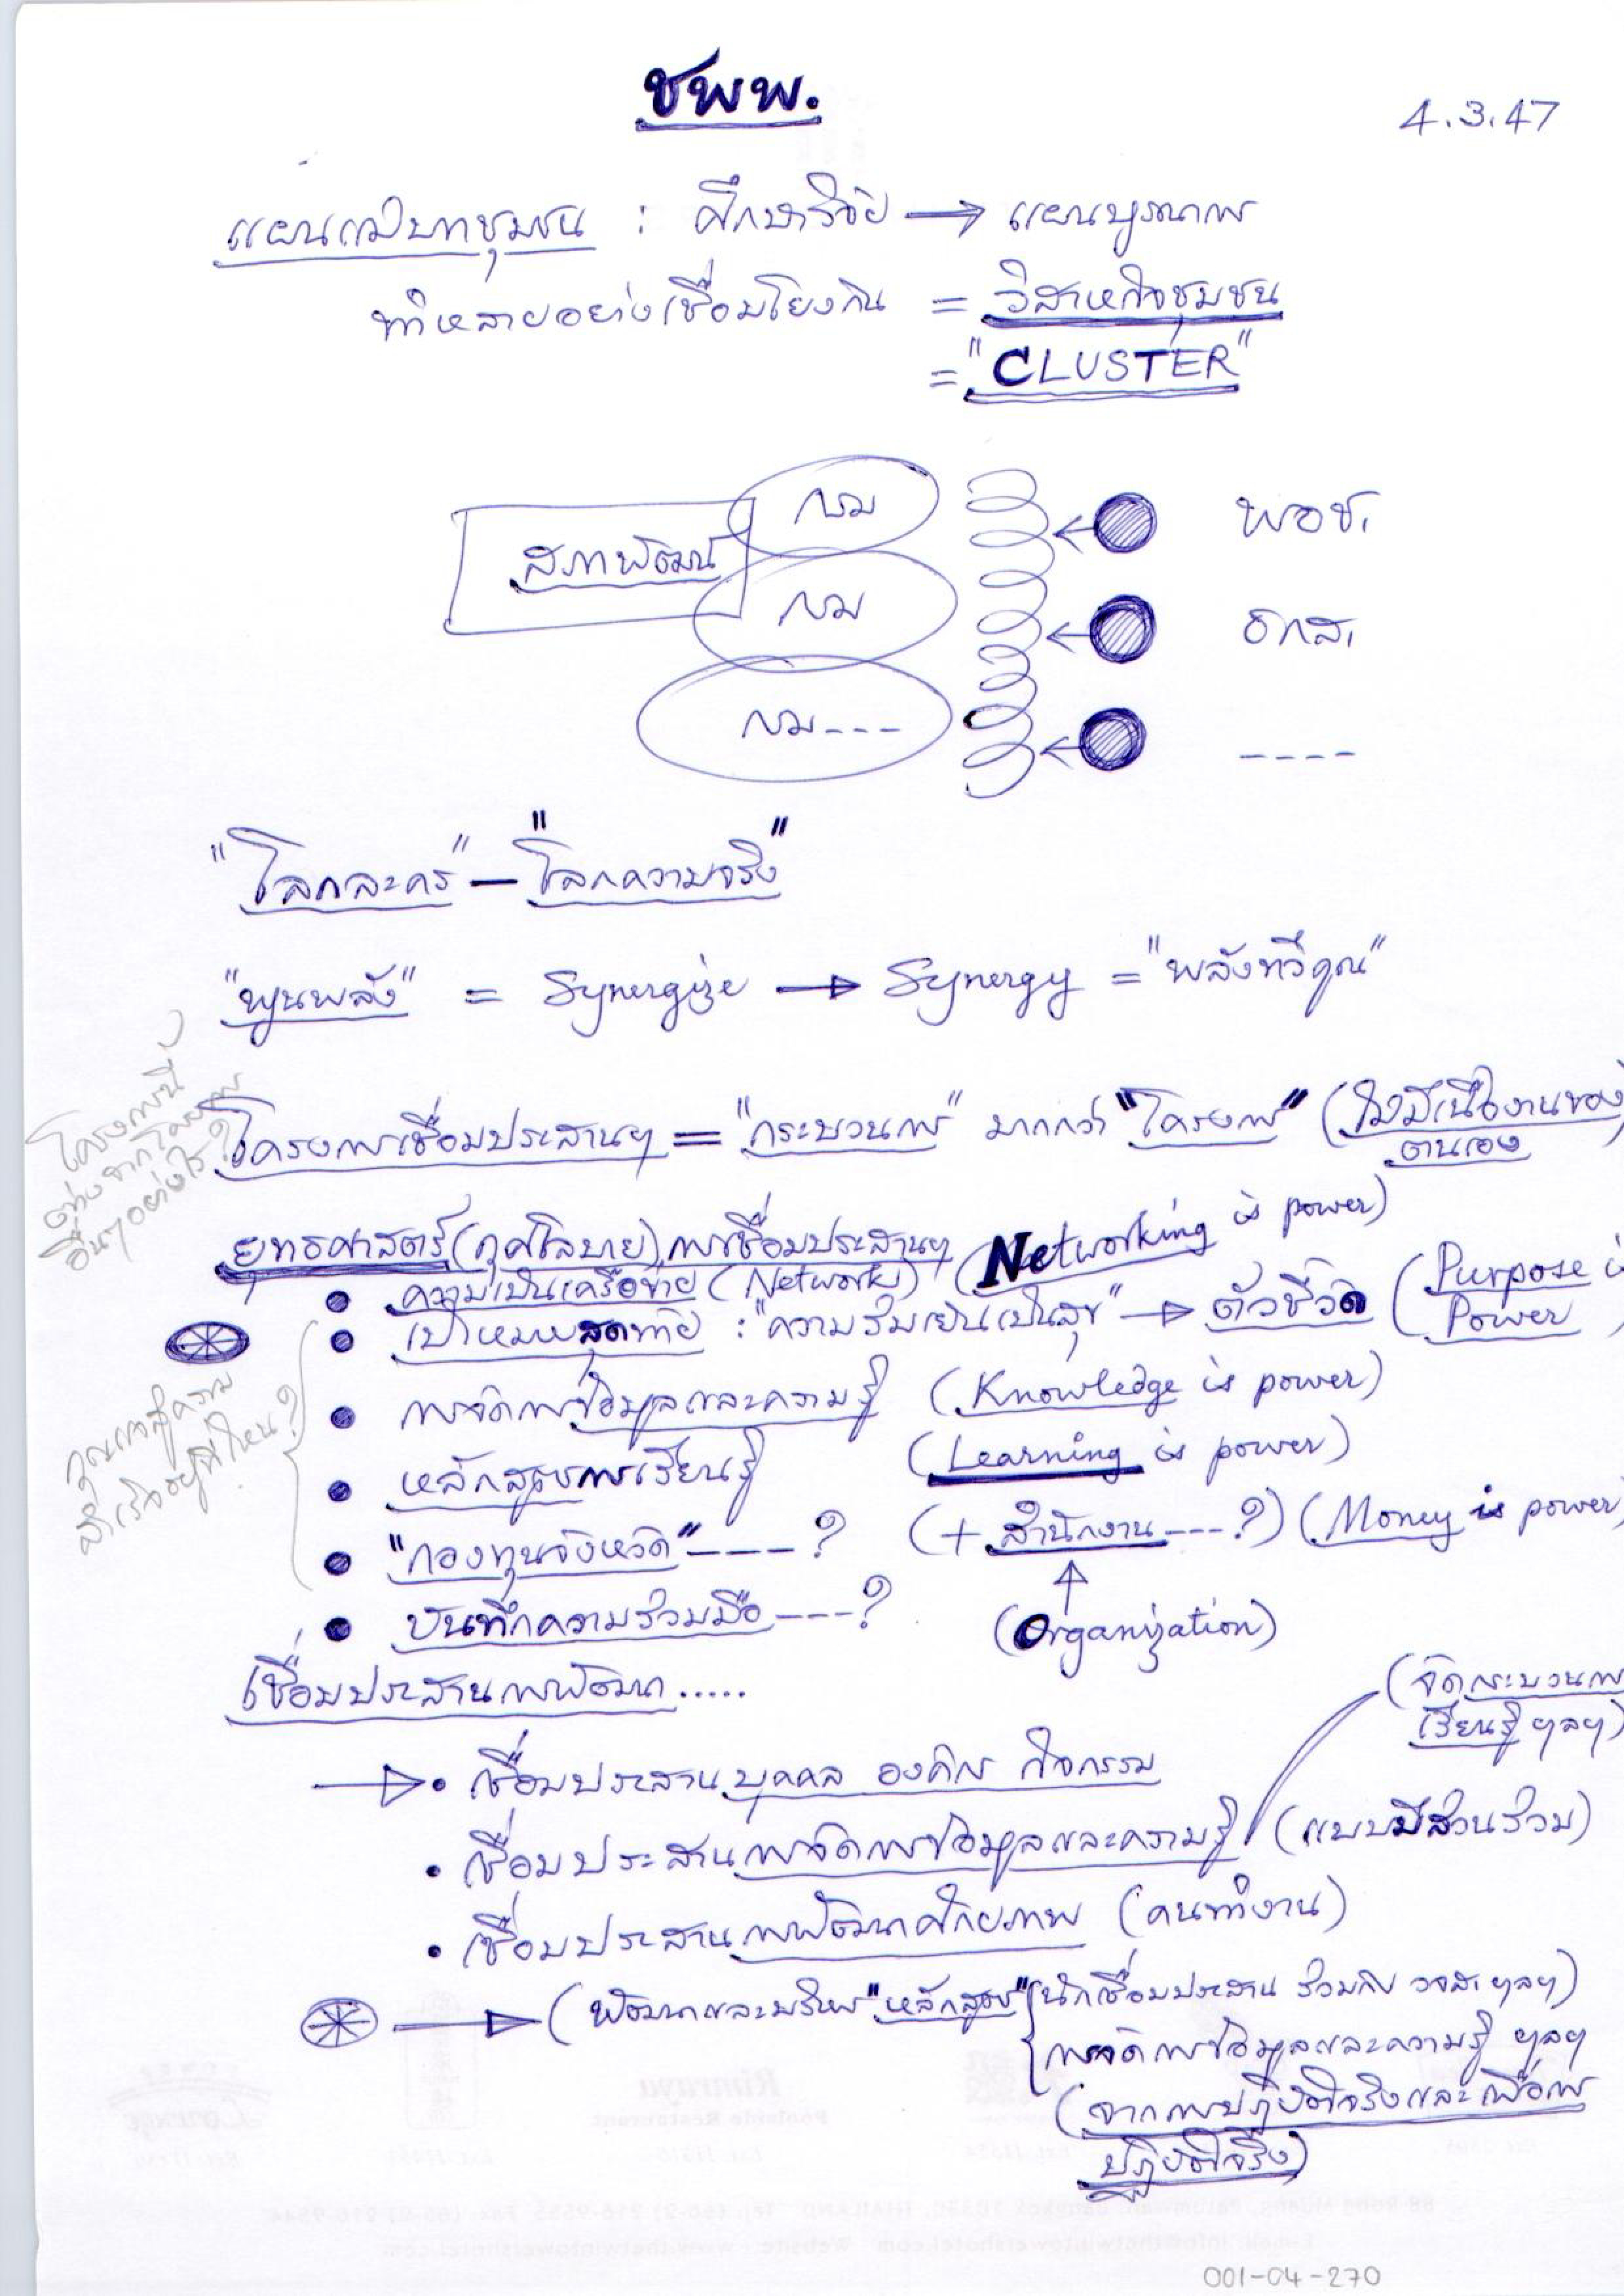 ชพพ.
4.3.47
แผนแม่บทชุมชน : ศึกษาวิจัย → แผนบูรณาการ
ทำหลายอย่างเชื่อมโยงกัน = วิสาหกิจชุมชน
= "CLUSTER"
สภาพัฒน์
กรม
กรม
กรม---
พอช.
ธกส.
----
"โลกละคร" – "โลกความจริง"
"พูนพลัง" = Synergize → Synergy = "พลังทวีคูณ"
โครงการนี้
ต่างจากโครงการ
อื่นๆ อย่างไร?
โครงการเชื่อมประสานฯ = "กระบวนการ" มากกว่า "โครงการ" (ไม่มีเนื้องานของ
ตนเอง
ยุทธศาสตร์ (กุศโลบาย) การเชื่อมประสานฯ
• ความเป็นเครือข่าย (Network) (Networking is power)
• เป้าหมายสุดท้าย : "ความร่มเย็นเป็นสุข" → ตัวชี้วัด (Purpose is
Power)
• การจัดการข้อมูลและความรู้ (Knowledge is power)
กุญแจสู่ความ
สำเร็จอยู่ที่ไหน?
• หลักสูตรการเรียนรู้ (Learning is power)
• "กองทุนจังหวัด"----? (+ สำนักงาน---?) (Money is power)
• บันทึกความร่วมมือ---? (Organization)
เชื่อมประสานการพัฒนา.....
(จัดกระบวนการ
เรียนรู้ ฯลฯ)
→ • เชื่อมประสานบุคคล องค์กร กิจกรรม
• เชื่อมประสานการจัดการข้อมูลและความรู้ (แบบมีส่วนร่วม)
• เชื่อมประสานการพัฒนาศักยภาพ (คนทำงาน)
→ (พัฒนาและบริหาร "หลักสูตร" นักเชื่อมประสาน ร่วมกับ วจส. ฯลฯ)
การจัดการข้อมูลและความรู้ ฯลฯ
(จากการปฏิบัติจริงและเพื่อการ
ปฏิบัติจริง)
001-04-270